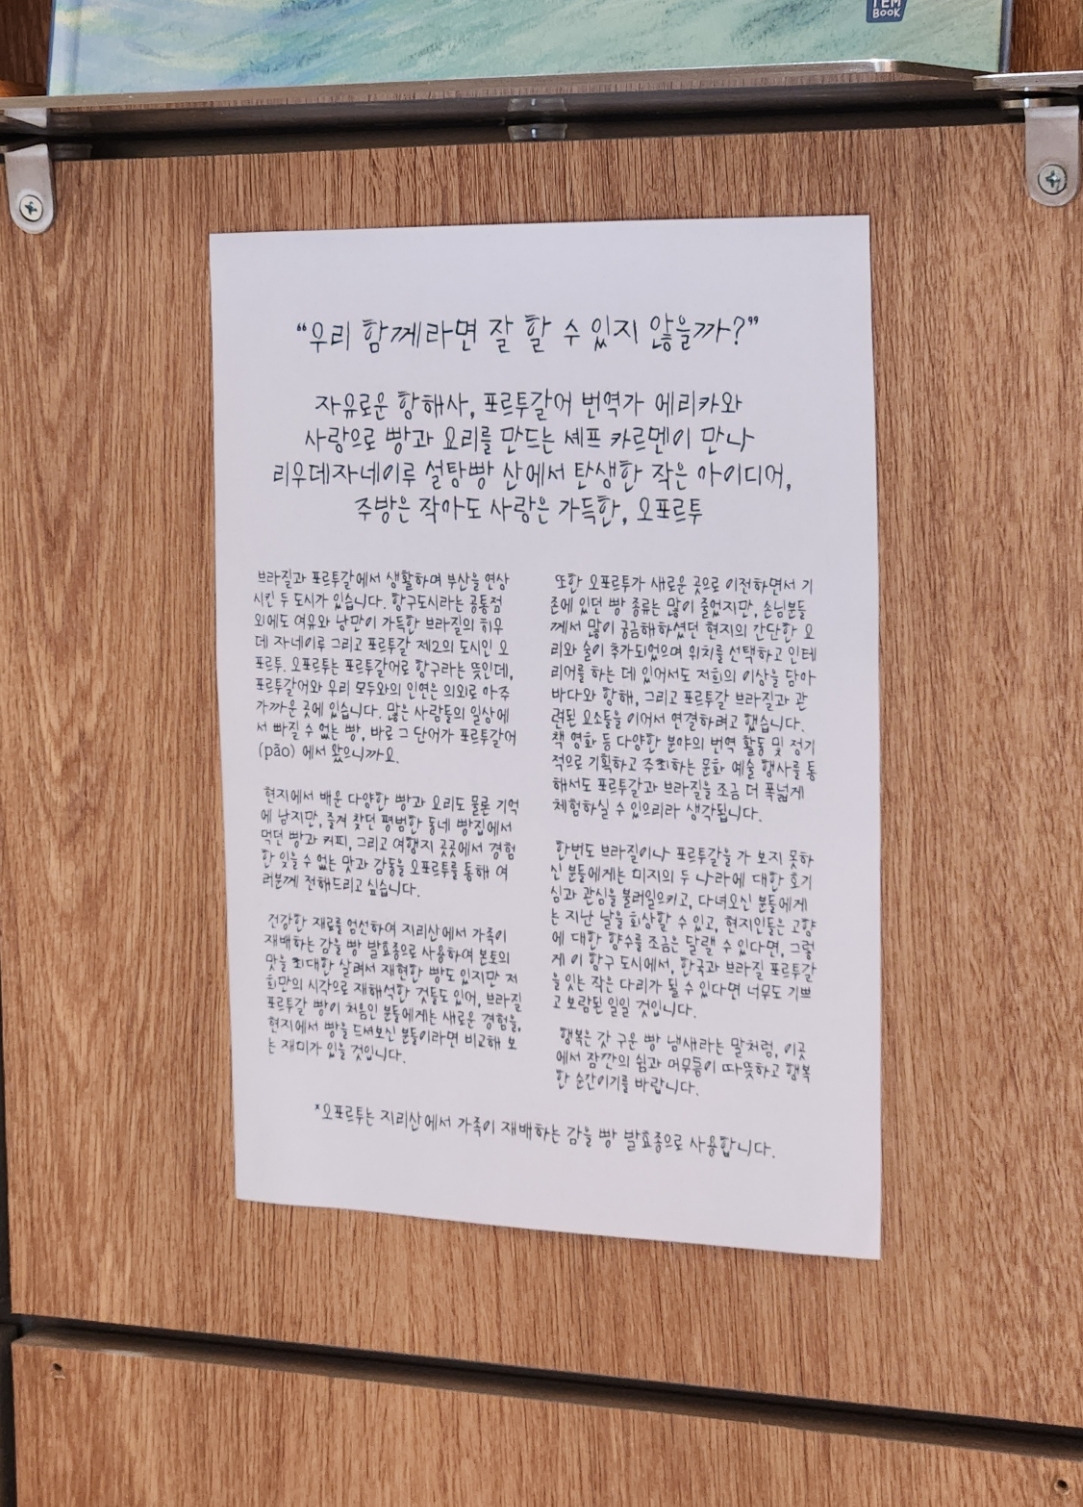 TEM
BOOK
“우리 함께라면 잘 할 수 있지 않을까?”
자유로운 항해사, 포르투갈어 번역가 에리카와
사랑으로 빵과 요리를 만드는 셰프 카르멘이 만나
리우데자네이루 설탕빵 산에서 탄생한 작은 아이디어,
주방은 작아도 사랑은 가득한, 오포르투
브라질과 포르투갈에서 생활하며 부산을 연상
시킨 두 도시가 있습니다. 항구도시라는 공통점
외에도 여유와 낭만이 가득한 브라질의 히우
데 자네이루 그리고 포르투갈 제2의 도시인 오
포르투. 오포르투는 포르투갈어로 항구라는 뜻인데,
포르투갈어와 우리 모두와의 인연은 의외로 아주
가까운 곳에 있습니다. 많은 사람들의 일상에
서 빠질 수 없는 빵, 바로 그 단어가 포르투갈어
(pão) 에서 왔으니까요.
현지에서 배운 다양한 빵과 요리도 물론 기억
에 남지만, 즐겨 찾던 평범한 동네 빵집에서
먹던 빵과 커피, 그리고 여행지 곳곳에서 경험
한 잊을 수 없는 맛과 감동을 오포르투를 통해 여
러분께 전해드리고 싶습니다.
건강한 재료를 엄선하여 지리산에서 가족이
재배하는 감을 빵 발효종으로 사용하여 본토의
맛을 최대한 살려서 재현한 빵도 있지만 저
희만의 시각으로 재해석한 것들도 있어, 브라질
포르투갈 빵이 처음인 분들에게는 새로운 경험을,
현지에서 빵을 드셔보신 분들이라면 비교해 보
는 재미가 있을 것입니다.
또한 오포르투가 새로운 곳으로 이전하면서 기
존에 있던 빵 종류는 많이 줄었지만, 손님분들
께서 많이 궁금해하셨던 현지의 간단한 요
리와 술이 추가되었으며 위치를 선택하고 인테
리어를 하는 데 있어서도 저희의 이상을 담아
바다와 항해, 그리고 포르투갈 브라질과 관
련된 요소들을 이어서 연결하려고 했습니다.
책 영화 등 다양한 분야의 번역 활동 및 정기
적으로 기획하고 주최하는 문화 예술 행사를 통
해서도 포르투갈과 브라질을 조금 더 폭넓게
체험하실 수 있으리라 생각됩니다.
한번도 브라질이나 포르투갈을 가 보지 못하
신 분들에게는 미지의 두 나라에 대한 호기
심과 관심을 불러일으키고, 다녀오신 분들에게
는 지난 날을 회상할 수 있고, 현지인들은 고향
에 대한 향수를 조금은 달랠 수 있다면, 그렇
게 이 항구 도시에서, 한국과 브라질 포르투갈
을 잇는 작은 다리가 될 수 있다면 너무도 기쁘
고 보람된 일일 것입니다.
행복은 갓 구운 빵 냄새라는 말처럼, 이곳
에서 잠깐의 쉼과 머무름이 따뜻하고 행복
한 순간이기를 바랍니다.
*오포르투는 지리산에서 가족이 재배하는 감을 빵 발효종으로 사용합니다.